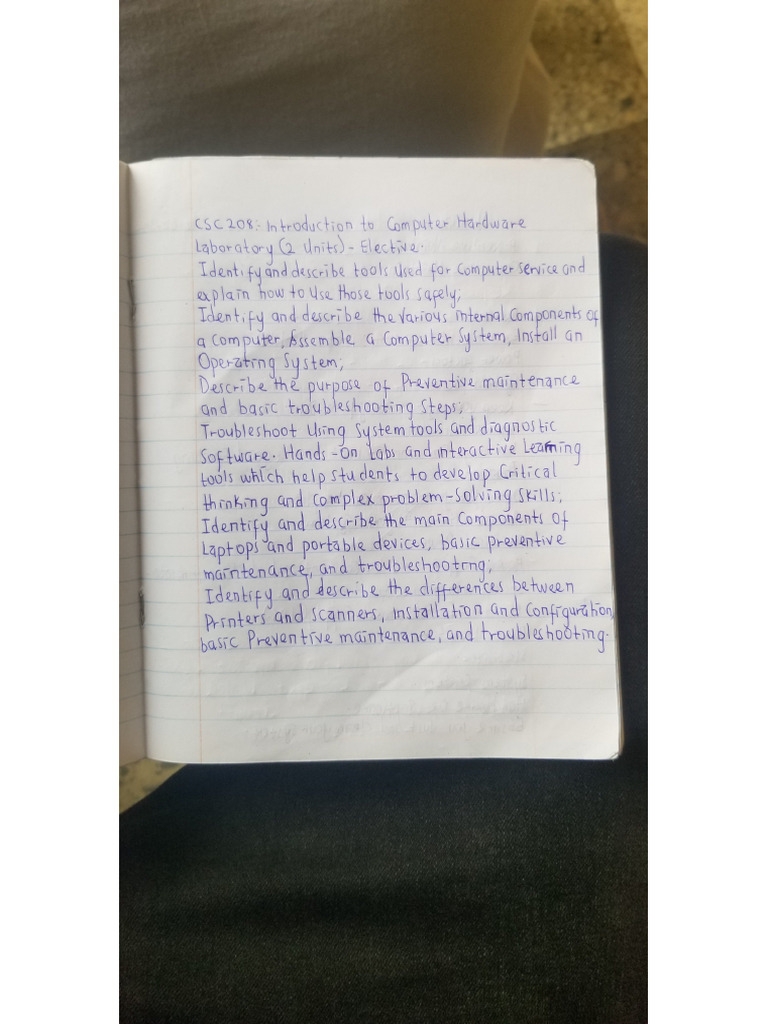 CSC208:- Introduction to Computer Hardware
Laboratory (2 Units) - Elective.
Identify and describe tools used for computer service and
explain how to use those tools safely;
Identify and describe the various internal components of
a computer, Assemble a Computer System, Install an
Operating System;
Describe the purpose of Preventive maintenance
and basic troubleshooting steps;
Troubleshoot Using System tools and diagnostic
Software. Hands-On Labs and interactive Learning
tools which help students to develop Critical
thinking and complex problem-solving skills;
Identify and describe the main components of
Laptops and portable devices, basic preventive
maintenance, and troubleshooting;
Identify and describe the differences between
Printers and scanners, installation and configuration,
basic Preventive maintenance, and troubleshooting.